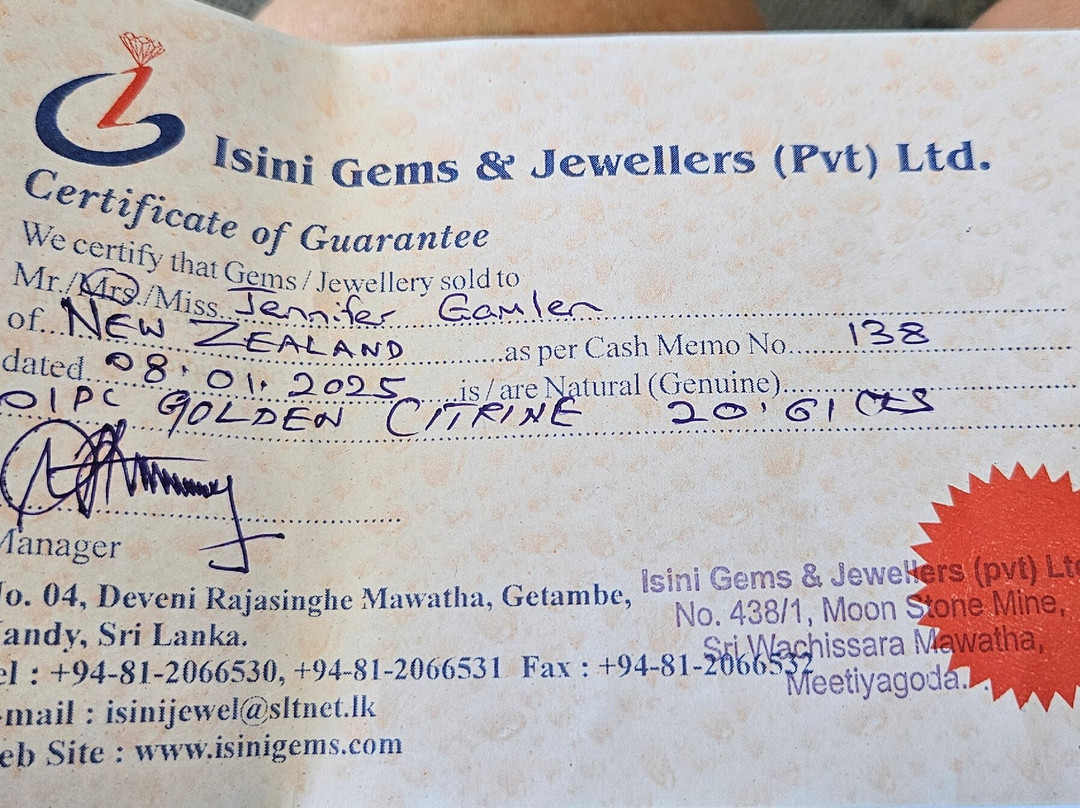 Isini Gems & Jewellers (Pvt) Ltd.
Certificate of Guarantee
We certify that Gems / Jewellery sold to
Mr./Mrs./Miss. Jennifer Gamlen
of. NEW ZEALAND as per Cash Memo No. 138
dated 08.01.2025 is / are Natural (Genuine)
01PC GOLDEN CITRINE 20.61 cts
Manager
No. 04, Deveni Rajasinghe Mawatha, Getambe,
Kandy, Sri Lanka.
Tel : +94-81-2066530, +94-81-2066531 Fax : +94-81-2066532
E-mail : isinijewel@sltnet.lk
Web Site : www.isinigems.com
Isini Gems & Jewellers (pvt) Ltd
No. 438/1, Moon Stone Mine,
Sri Wachissara Mawatha,
Meetiyagoda.